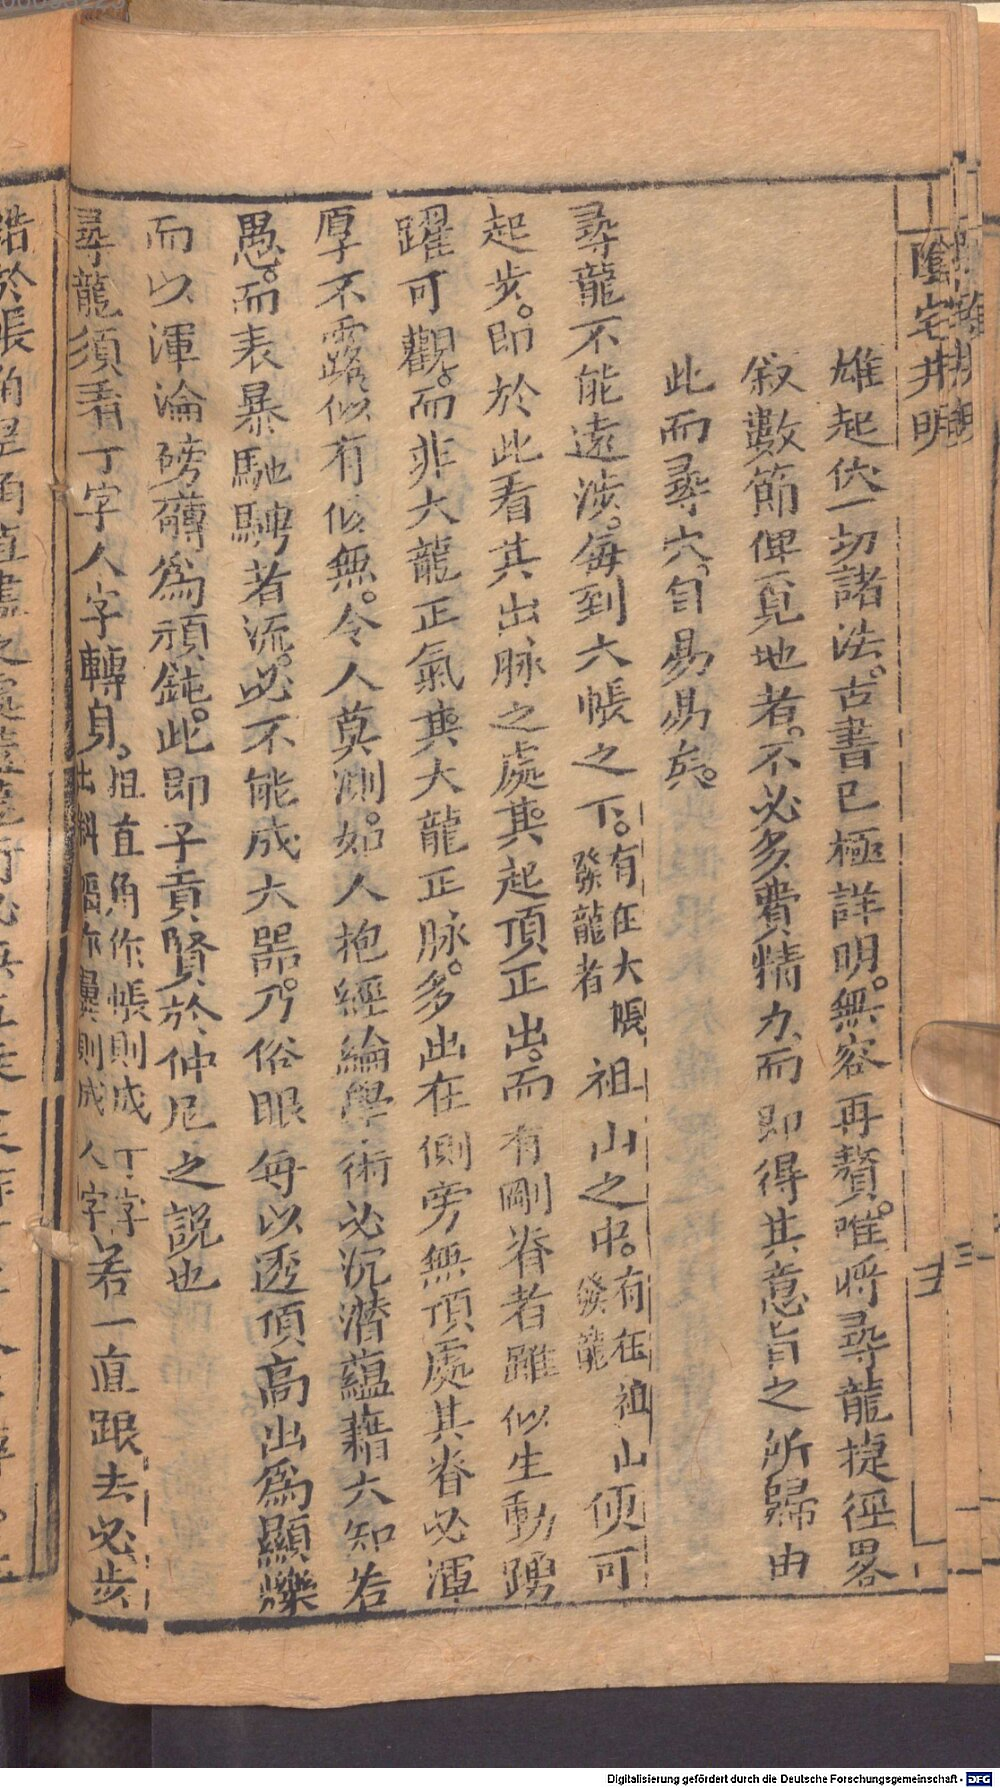 陰宅井明
雄起伏一切諸法。古書已極詳明。無容再贅。唯將尋龍捷徑畧
叙數節俾覓地者。不必多費精力。而即得其意旨之所歸由
此而尋穴。自易易矣。
尋龍不能遠涉。每到大帳之下。有在大帳發龍者祖山之中。有在祖山發龍便可
起步。即於此看其出脉之處。其起頂正出。而有剛脊者雖似生動踴
躍可觀。而非大龍正氣其大龍正脉。多出在側旁無頂處其脊必渾
厚不露似有似無。令人莫測。如人抱經綸學術必沉潛蘊藉大知若
愚。而表暴馳騁者流。必不能成大器。乃俗眼每以透頂高出爲顯爍
而以渾淪磅礴爲頑鈍。此即子貢賢於仲尼之說也
尋龍須看丁字人字轉身。担直角作帳則成丁字出斜幅作翼則成人字若一直跟去必步
於帳角